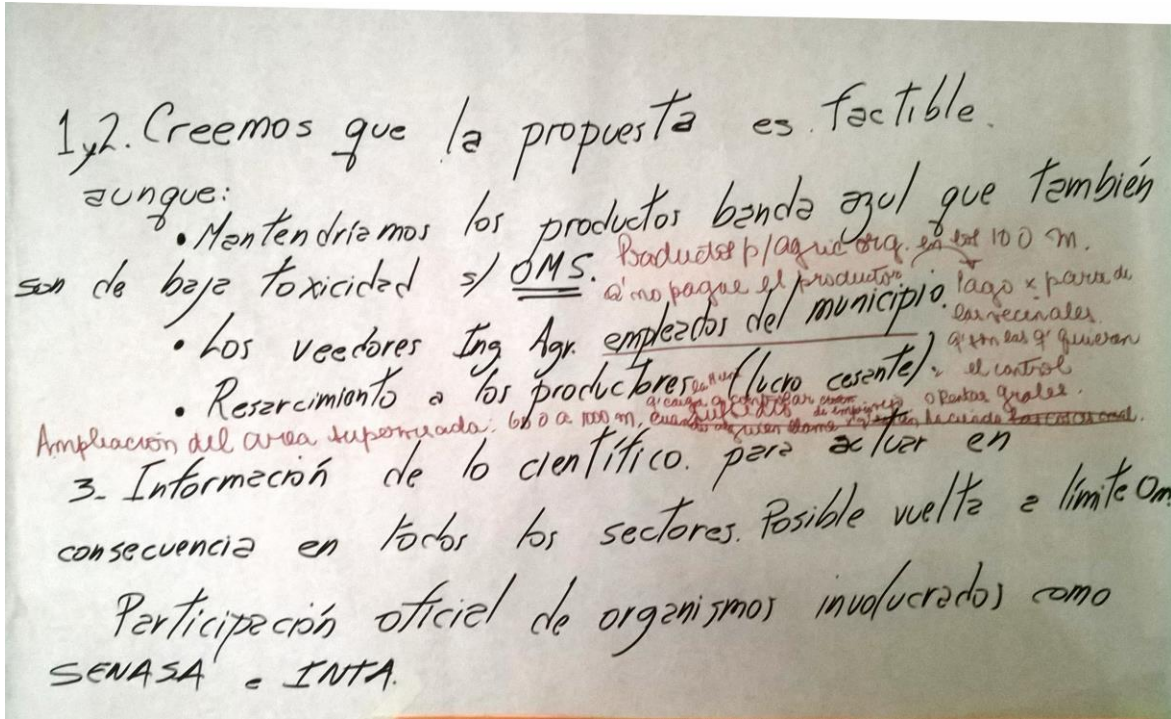 1y2. Creemos que la propuesta es factible.
aunque:
• Mantendríamos los productos banda azul que también
son de baja toxicidad s/ OMS.
Productos p/agric org. en los 100 m.
q' no pague el productor
• Los veedores Ing Agr. empleados del municipio.
Pago x para de
las vecinales
q' son las q' quieren
el control
• Resarcimiento a los productores (lucro cesante).
o Rentas grales.
Ampliación del area supervisada: 600 a 1000 m,
3- Información de lo científico. para actuar en
consecuencia en todos los sectores. Posible vuelta a límite 0m
Participación oficial de organismos involucrados como
SENASA e INTA.